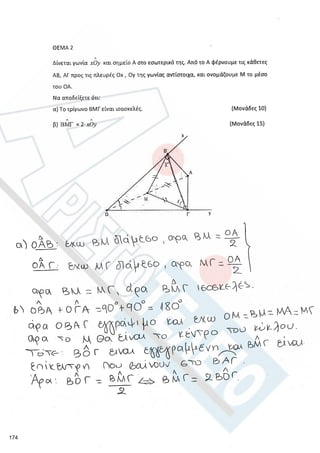 ΘΕΜΑ 2
Δίνεται γωνία xÔy και σημείο Α στο εσωτερικό της. Από το Α φέρνουμε τις κάθετες
ΑΒ, ΑΓ προς τις πλευρές Οx , Oy της γωνίας αντίστοιχα, και ονομάζουμε Μ το μέσο
του ΟΑ.
Να αποδείξετε ότι:
α) Το τρίγωνο ΒΜΓ είναι ισοσκελές. (Μονάδες 10)
β) ΒM̂Γ = 2· xÔy (Μονάδες 15)
x
B
A
M
O Γ y
α) ΟÂΒ: έχω ΒΜ διάμεσο, αρα ΒΜ = ΟΑ/2
ΟÂΓ: έχω ΜΓ διάμεσο, αρα ΜΓ = ΟΑ/2
αρα ΒΜ = ΜΓ, άρα ΒM̂Γ ισοσκελές.
β) ΟB̂Α + ΟΓ̂Α = 90° + 90° = 180°
άρα ΟΒΑΓ εγγράψιμο και έχω ΟΜ=ΒΜ=ΜΑ=ΜΓ
αρα το Μ θα είναι το κέντρο του κύκλου.
Τότε: ΒÔΓ είναι εγγεγραμμένη και ΒM̂Γ είναι
επίκεντρη που βαίνουν στο ΒΑΓ.
Άρα: ΒÔΓ = ΒM̂Γ/2 ⇔ ΒM̂Γ = 2ΒÔΓ.
174